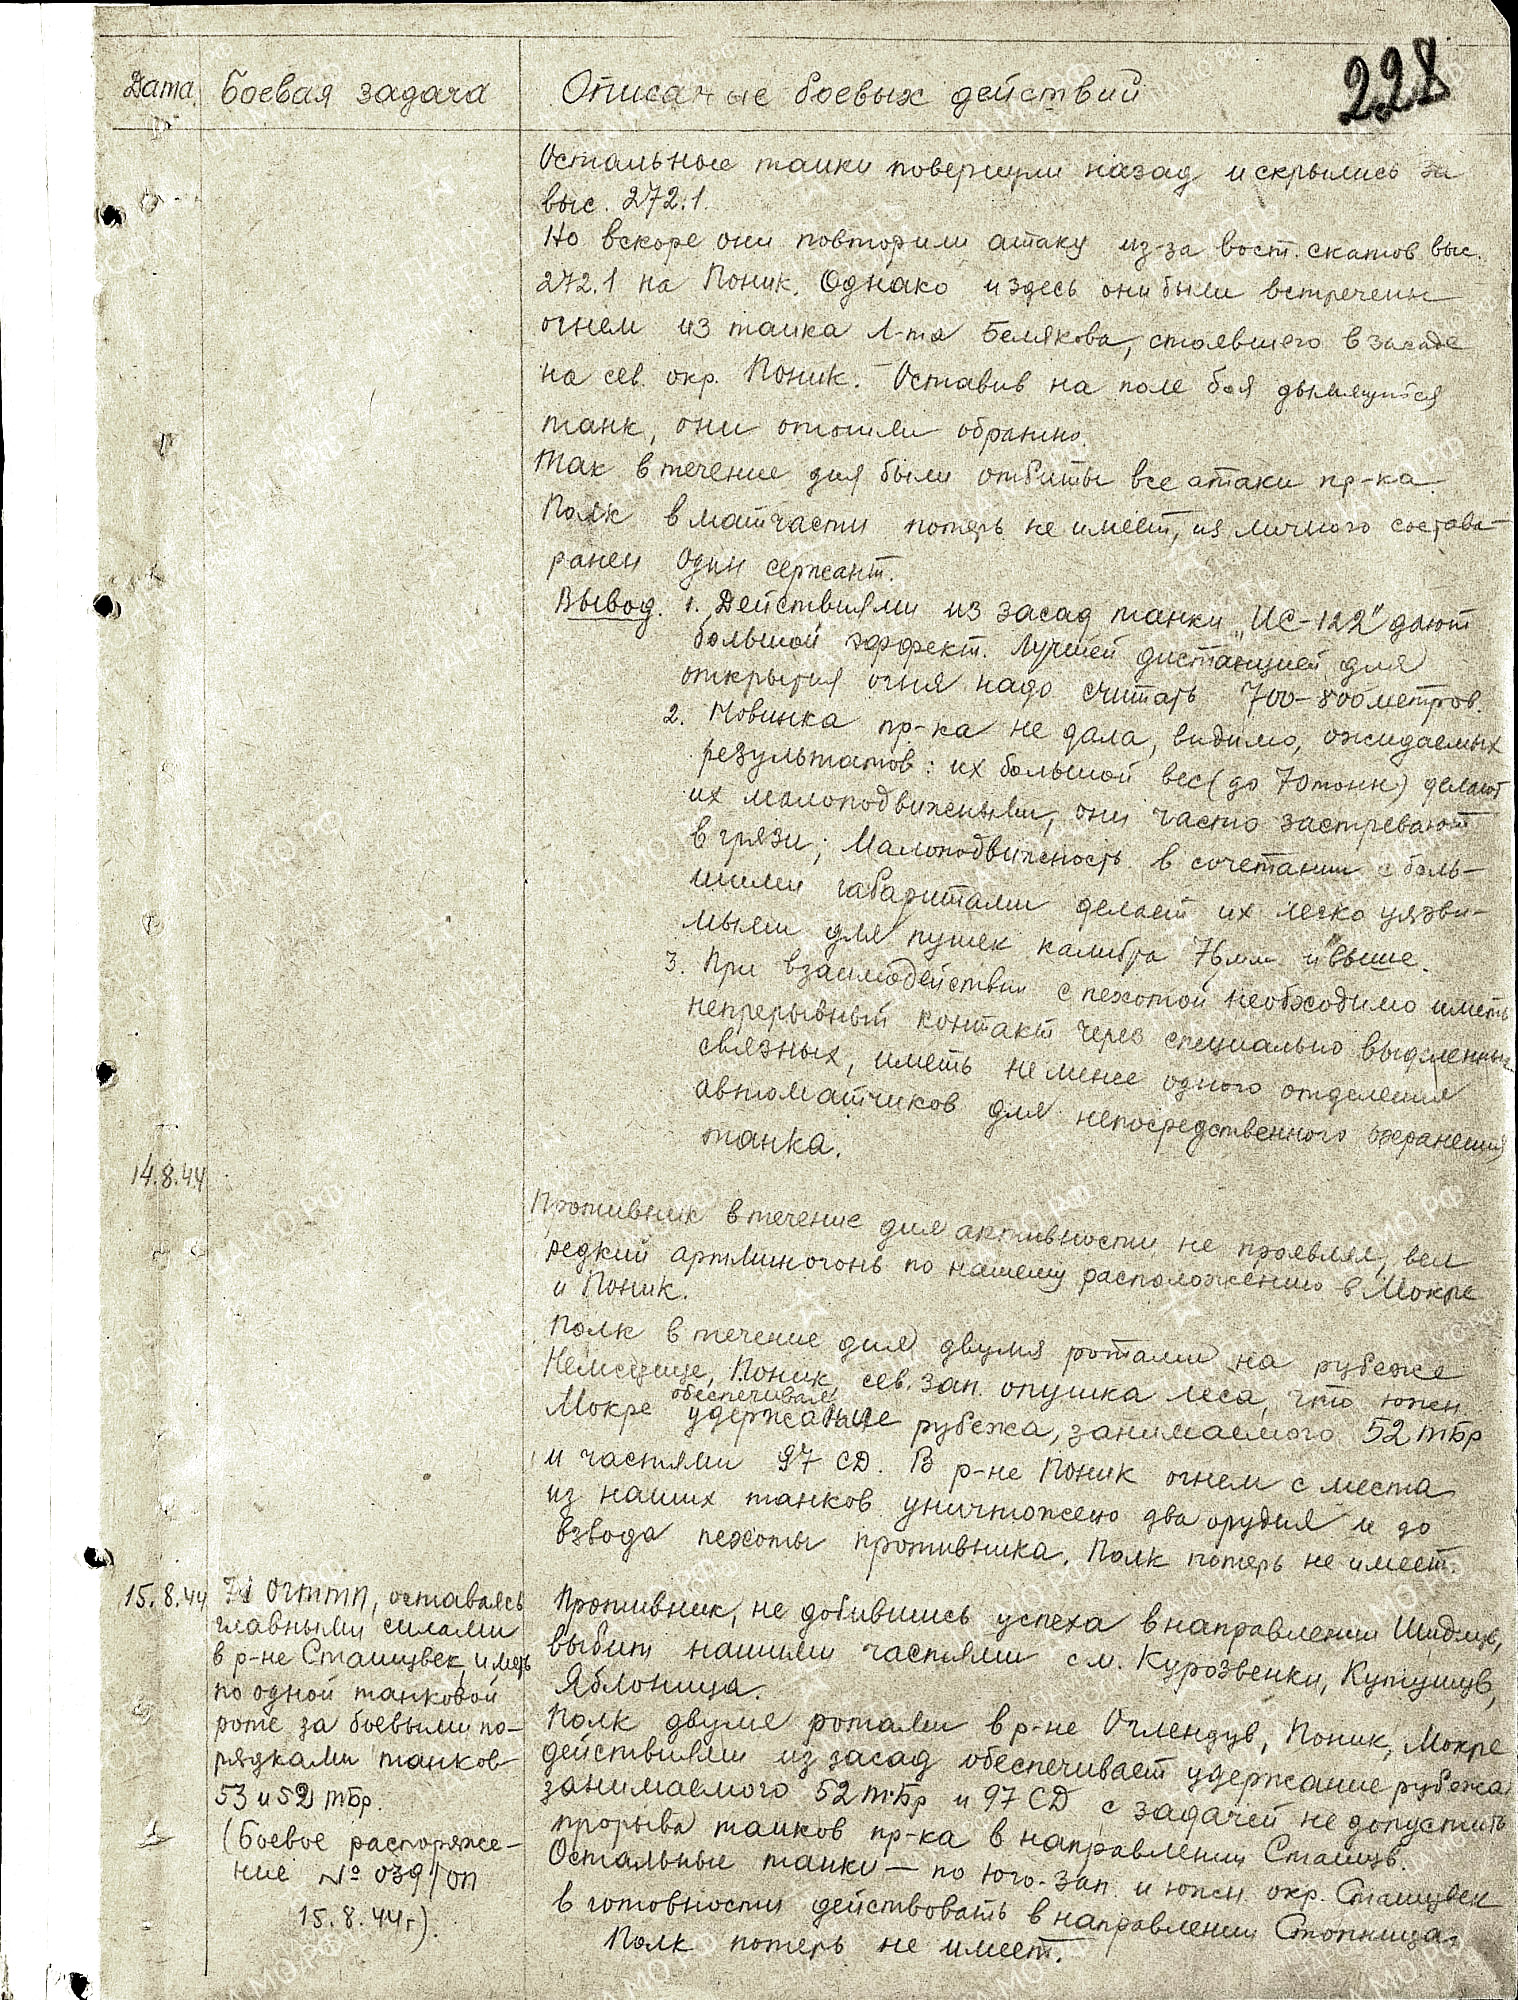 228
Дата Боевая задача Описание боевых действий
Остальные танки повернули назад и скрылись за
выс. 272.1.
Но вскоре они повторили атаку из-за вост. скатов выс.
272.1 на Поник. Однако и здесь они были встречены
огнем из танка л-та Белякова, стоявшего в засаде
на сев. окр. Поник. Оставив на поле боя дымящийся
танк, они отошли обратно.
Так в течение дня были отбиты все атаки пр-ка.
Полк в матчасти потерь не имеет, из личного состава
ранен один сержант.
Вывод. 1. Действиями из засад танки „ИС-122" дают
большой эффект. Лучшей дистанцией для
открытия огня надо считать 700-800 метров.
2. Новинка пр-ка не дала, видимо, ожидаемых
результатов: их большой вес (до 70 тонн) делают
их малоподвижными, они часто застревают
в грязи; малоподвижность в сочетании с боль-
шими габаритами делает их легко уязви-
мыми для пушек калибра 76 мм и выше.
3. При взаимодействии с пехотой необходимо иметь
непрерывный контакт через специально выделенных
связных, иметь не менее одного отделения
автоматчиков для непосредственного охранения
танка.
14.8.44
Противник в течение дня активности не проявлял, вел
редкий артминогонь по нашему расположению в Мокре
и Поник.
Полк в течение дня двумя ротами на рубеже
Немсцице, Поник, сев. зап. опушка леса, что южн
обеспечивал
Мокре удержание рубежа, занимаемого 52 тбр
и частями 97 СД. В р-не Поник огнем с места
из наших танков уничтожено два орудия и до
взвода пехоты противника. Полк потерь не имеет.
15.8.44 71 Огттп, оставаясь
главными силами
в р-не Сташувек, иметь
по одной танковой
роте за боевыми по-
рядками танков
53 и 52 тбр.
(Боевое распоряже-
ние № 039/оп
15.8.44г).
Противник, не добившись успеха в направлении Шидлув,
выбит нашими частями с м. Курозвенки, Кутушув,
Яблоница.
Полк двумя ротами в р-не Оглендув, Поник, Мокре
действиями из засад обеспечивает удержание рубежа
занимаемого 52 тбр и 97 СД с задачей не допустить
прорыва танков пр-ка в направлении Сташув.
Остальные танки — по юго-зап. и южн. окр. Сташувек
в готовности действовать в направлении Стопница.
Полк потерь не имеет.